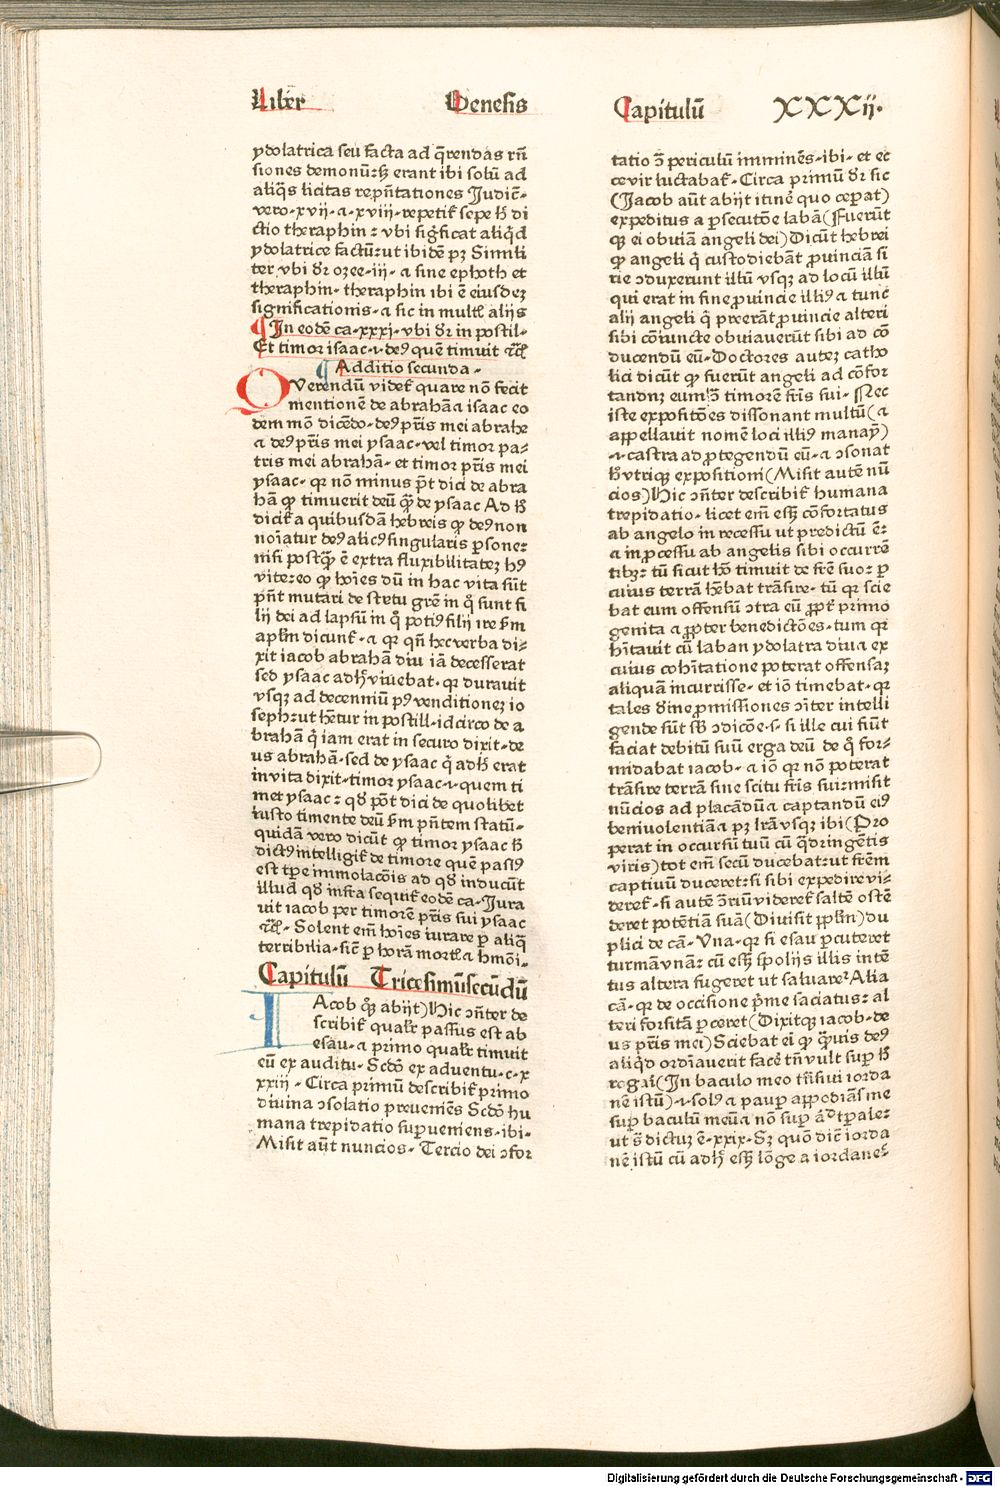 Liber Genesis Capitulū XXXij.
ydolatrica seu facta ad q̄rendas rn̄
siones demonū:sꝫ erant ibi solū ad
aliq̄s licitas rep̄ntationes Judic̄.
vero.xvij.⁊.xviij.repetit᷑ sepe h̄ di
ctio theraphin : vbi sigficat aliq̄d
ydolatrice factū:ut ibidē pꝫ Simili
ter vbi dr̄ ozee.iij.a fine ephoth et
theraphin. theraphin ibi ē eiusdeꝫ
significationis.⁊ sic in multꝭ alijs
¶ In eodē ca.xxxj.vbi dr̄ in postil.
Et timor isaac.i.deꝰ quē timuit ⁊cꝭ
¶ Additio secunda.
QVerendū videt᷑ quare nō fecit
mentionē de abrahā ⁊ isaac eo
dem mō dicēdo.deꝰ pr̄is mei abrahe
⁊ deꝰ pr̄is mei ysaac.vel timor pa-
tris mei abrahā. et timor pr̄is mei
ysaac. qr nō minus p̄t dici de abra
hā ꝙ timuerit deū q̄ꝫ de ysaac Ad h̄
dicit᷑ a quibusdā hebreis ꝙ deꝰ non
noīatur deꝰ alicꝰ singularis ꝑsone:
nisi postq̄ꝫ ē extra fluxibilitateꝫ hꝰ
vite:eo ꝙ hoīes dū in hac vita sūt
pn̄t mutari de statu gr̄e in q̊ sunt fi
lij dei ad lapsū in q̊ potiꝰ filij ire sm̄
aplm̄ dicunt᷑.⁊ qr qn̄ hec verba di-
xit iacob abrahā diu iā decesserat
sed ysaac adhꝰ viuebat. qr durauit
vsqꝫ ad decenniū pꝰ venditioneꝫ io
seph:ut hētur in postill.idcirco de a
brahā q̇ iam erat in securo dixit.de
us abrahā.sed de ysaac q̇ adhꝰ erat
in vita dixit.timor ysaac.i.quem ti
met ysaac : qd̄ pōt dici de quolibet
iusto timente deū sm̄ pn̄tem statū.
quidā vero dicūt ꝙ timor ysaac h̄
dictꝰ intelligit᷑ de timore quē passꝰ
est tp̄e immolacōis ad qd̄ inducūt
illud qd̄ infra sequit᷑ eodē ca.Jura
uit iacob per timorē pr̄is sui ysaac
⁊cꝭ. Solent em̄ hoīes iurare ꝑ aliq̄
terribilia.sic̄ ꝑ horā mortꝭ ⁊ hmōi.
Capitulū Tricesimūsecūdū
IAcob q̊ꝫ abijt) Hic ↄn̄ter de
scribit᷑ qualr̄ passus est ab
esau.⁊ primo qualr̄ timuit
eū ex auditu. Scd̄o ex aduentu.c.x
xxiij. Circa primū describit᷑ primo
diuina ↄsolatio preueniēs Scd̄o hu
mana trepidatio suꝑueniens.ibi.
Misit aūt nuncios. Tercio dei ↄfor
tatio ↄ̄ periculū imminēs.ibi. et ec
ce vir luctabat᷑. Circa primū dr̄ sic
(Jacob aūt abijt itinē quo ceperat)
expeditus a ꝑsecutōe labā (Fuerūt
qꝫ ei obuiā angeli dei) Dicūt hebrei
ꝙ angeli q̇ custodiebāt ꝓuinciā si
rie ↄduxerunt illū vsqꝫ ad locū illū
qui erat in fine ꝓuincie illiꝰ ⁊ tunc
alij angeli q̇ preerāt ꝓuincie alteri
sibi cōiuncte obuiauerūt sibi ad cō
ducendū eū. Doctores auteꝫ catho
lici dicūt ꝙ fuerūt angeli ad cōfor
tandū eum ↄ̄ timorē fr̄is sui. Nec
iste expositōes dissonant multū (⁊
appellauit nomē loci illiꝰ manay̆)
.i. castra ad ꝓtegendū eū.⁊ ↄsonat
hꝰ vtriqꝫ expositioni (Misit autē nū
cios) Hic ↄn̄ter describit᷑ humana
trepidatio.licet em̄ eēt cōfortatus
ab angelo in recessu ut predictū ē:
⁊ in ꝓcessu ab angelis sibi occurrē
tibꝫ: tū sicut hō timuit de fr̄e suo: ꝑ
cuius terrā hēbat trāsire. tū qr scie
bat eum offensū ↄtra eū ꝓpt᷑ primo
genita ⁊ ꝓpter benedictōes.tum qr
hītauit cū laban ydolatra diu ⁊ ex
cuius cohītatione poterat offensaꝫ
aliquā incurrisse. et iō timebat. qr
tales diuine ꝓmissiones ↄn̄ter intelli
gende sūt sb̄ ↄdicōe.s. si ille cui fiūt
faciat debitū suū erga deū de q̊ for-
midabat iacob.⁊ iō qr nō poterat
trāsire terrā sine scitu fr̄is sui:misit
nūcios ad placādū ⁊ captandū eiꝰ
beniuolentiā ⁊ pꝫ lr̄a vsqꝫ ibi (Pro
perat in occursū tuū cū q̄dringētis
viris) tot em̄ secū ducebat:ut fr̄em
captiuū duceret:si sibi expedire vi-
deret᷑.si autē ↄ̄riū videret᷑ saltē ostē
deret potētiā suā (Diuisit ppl̄m) du
plici de cā. Vna. qr si esau ꝑcuteret
turmā vnā: cū eēt spolijs illis intē
tus altera fugeret ut saluaret᷑ Alia
cā. qr de occisione pͥme saciatus: al
teri forsitā ꝑceret (Dixitqꝫ iacob.de
us pr̄is mei) Sciebat ei ꝙ q̄uis deꝰ
aliq̄d ordīauerit facē tn̄ vult suꝑ h̄
rogari (In baculo meo trāsiui iorda
nē istū) .i. solꝰ ⁊ pauꝑ appodiās me
suꝑ baculū meū ⁊ nō suꝑ
ut s̄ dictuꝫ ē.xxix. Sꝫ quō dic̄ iorda
nē istū cū adhꝰ eēt lōge a iordane:
Digitalisierung gefördert durch die Deutsche Forschungsgemeinschaft - DFG